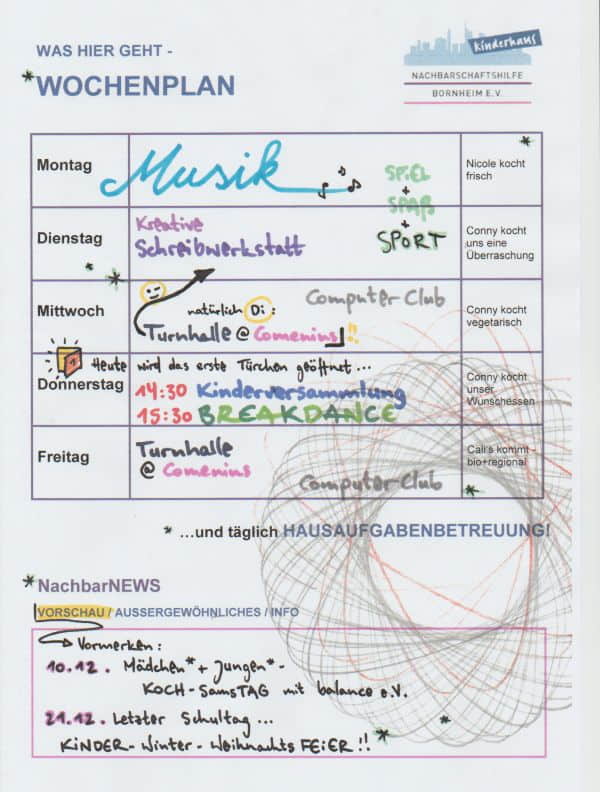 WAS HIER GEHT -
*WOCHENPLAN
Kinderhaus
NACHBARSCHAFTSHILFE
BORNHEIM E.V.
Montag
Musik
SPiEL
+
SPAß
+
Nicole kocht
frisch
Dienstag
Kreative
Schreibwerkstatt
SPORT
Conny kocht
uns eine
Überraschung
Mittwoch
Computer Club
natürlich Di:
Turnhalle @ Comenius!!
Conny kocht
vegetarisch
1 Heute wird das erste Türchen geöffnet...
Donnerstag
14:30 Kinderversammlung
15:30 BREAKDANCE
Conny kocht
unser
Wunschessen
Freitag
Turnhalle
@ Comenius
Computer Club
Cali's kommt -
bio+regional
* ...und täglich HAUSAUFGABENBETREUUNG!
*NachbarNEWS
VORSCHAU / AUSSERGEWÖHNLICHES / INFO
→ Vormerken:
10.12. Mädchen* + Jungen* -
KOCH - SamsTAG mit balance e.V.
21.12. Letzter Schultag ...
KiNDER - Winter - Weihnachts FEiER!!*